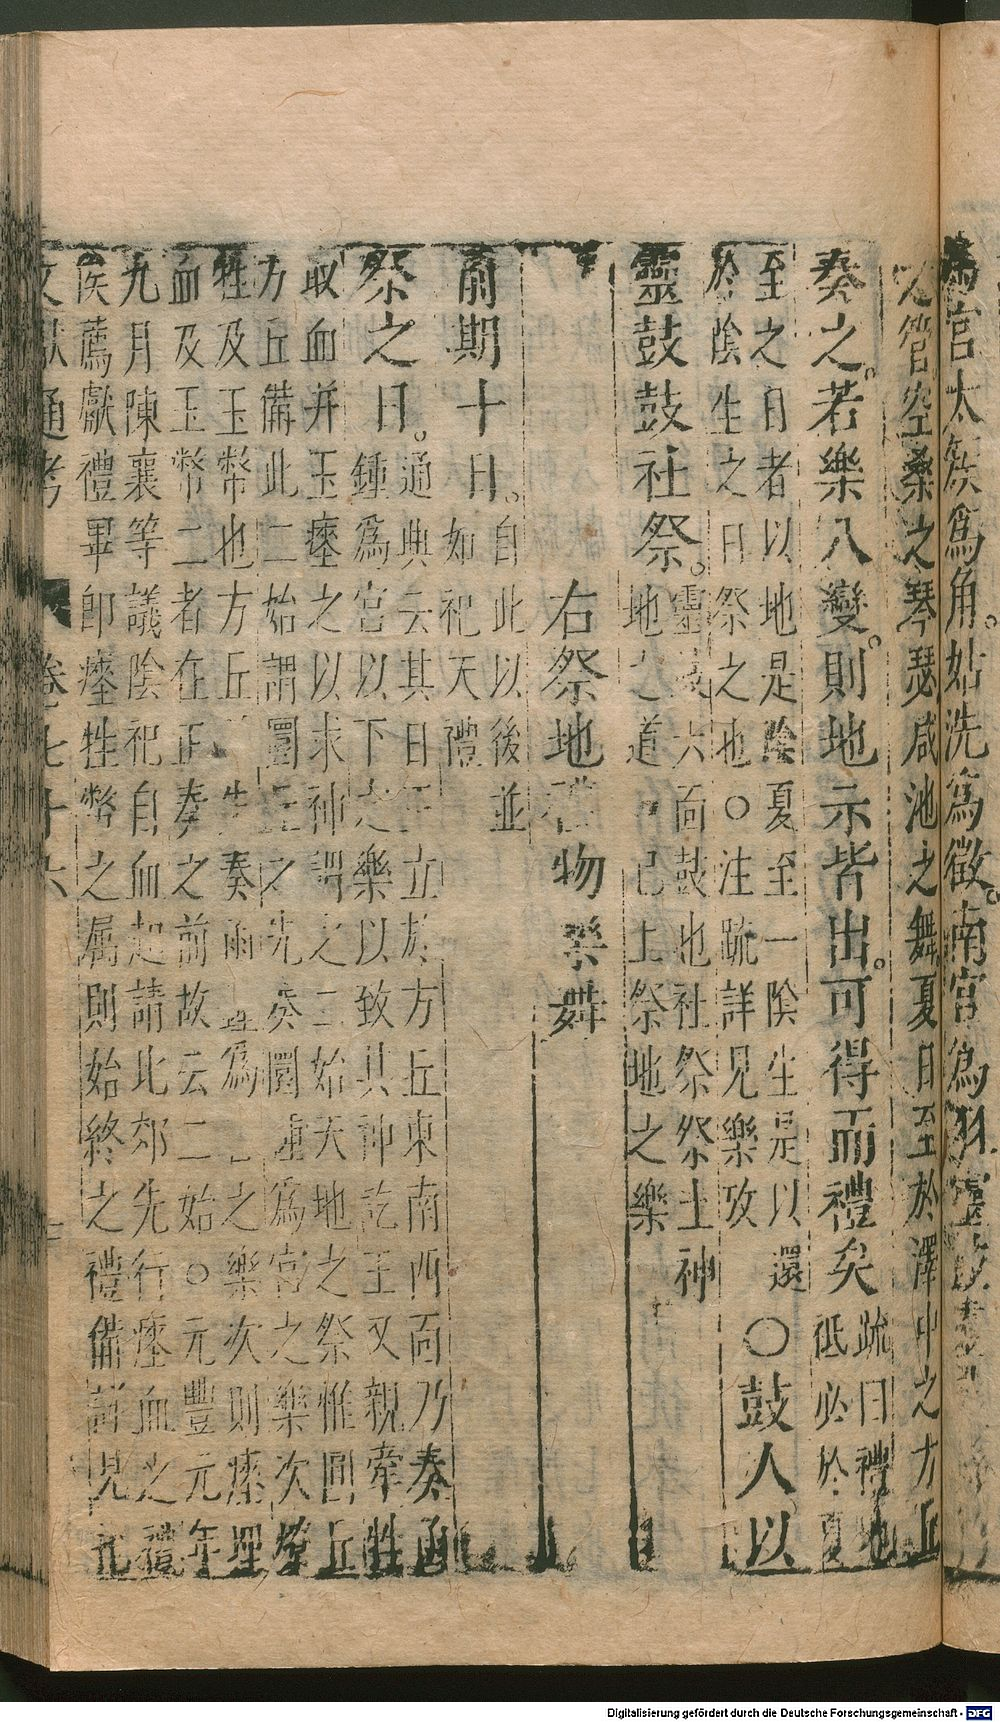 為宮太蔟為角姑洗為徵南宮為羽靈鼓
之管空桑之琴瑟咸池之舞夏日至於澤中之方丘
奏之若樂八變則地示皆出可得而禮矣
疏曰禮地
祗必於夏
至之日者以地是陰夏至一陰生是以還
於陰生之日祭之也○注疏詳見樂攷
○鼓人以
靈鼓鼓社祭
靈鼓六面鼓也社祭祭土神
地之道 已上祭地之樂
右祭地禮物樂舞
前期十日
自此以後並
如祀天禮
祭之日
通典云其日王立於方丘東南西面乃奏函
鍾為宮以下之樂以致其神訖王又親牽牲
取血并玉瘞之以求神謂之二始天地之祭惟圜丘
方丘備此二始謂圜丘之先奏圜鍾為宮之樂次燎
牲及玉幣也方丘 先奏函 為 之樂次則瘞埋
血及玉幣二者在正奏之前故云二始○元豐元年
九月陳襄等議陰祀自血起請北郊先行瘞血之禮
俟薦獻禮畢即瘞牲幣之属則始終之禮備詳見北
文獻通考 卷七十六
Digitalisierung gefördert durch die Deutsche Forschungsgemeinschaft - DFG